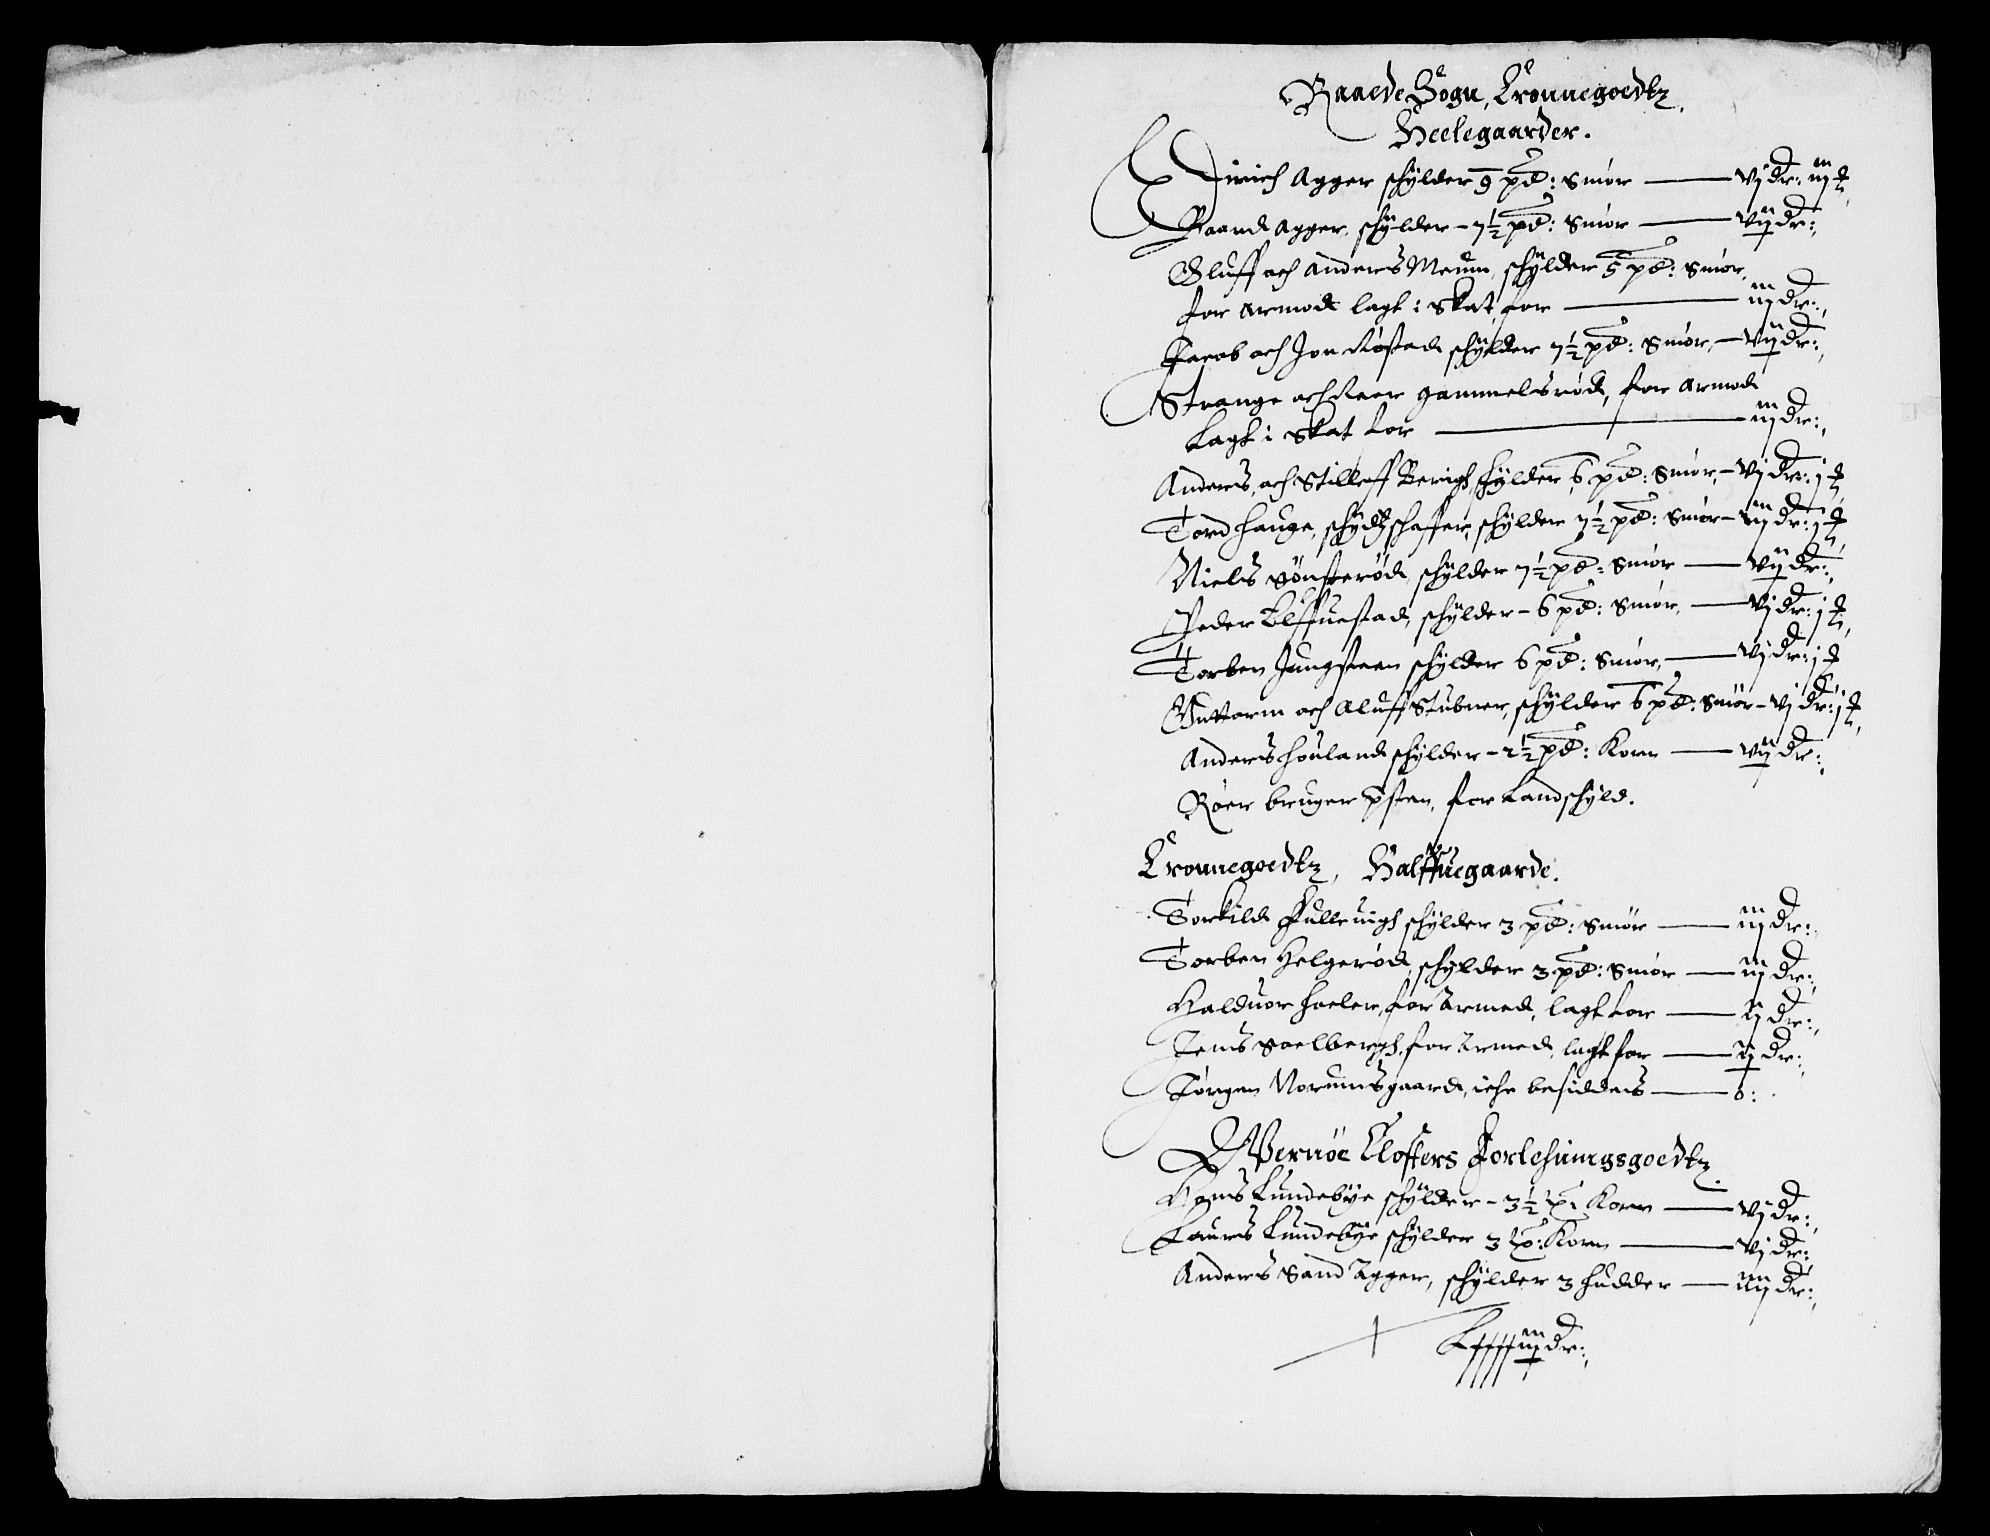 Raaede Sogn, Cronnegoedtz,
Heelegaarder.
Erich Agger schylder 9 pd: Smør — vj dr: iij
Raandi Agger, schylder - 7½ pd: Smør — vij dr:,
Oluff och Anders Meum, schylder 5 pd: Smør,
for armod lagt i Skat for — iij dr:,
Jacob och Jon Røstad schylder 7½ pd: Smør, — vij dr:,
Strange och Roer gammelsrød, for armod
Lagt i Skat for — iij dr:,
Anders, och Stilleff Berigh schylder, 6 pd: Smør, — vj dr: j
Tord Hauge, schydtzschaffer, schylder 7½ pd: Smør — dr: j
Niels Sønsterød, schylder 7½ pd: Smør — vij dr:,
Peder Elffuestad, schylder - 6 pd: Smør, — vj dr: j
Torben Jungsteen schylder 6 pd: Smør, — vj dr: j
Guttorm och Aluff Stubner, schylder 6 pd: Smør — vj dr: j
Anders Houland schylder - 2½ pd: Korn — vij dr:,
Røer bruger Østen, for Landschyld.
Cronnegoedtz, Halffuegaarde.
Torkild Fulleuigh schylder 3 pd: Smør — iij dr:,
Torben Helgerød, schylder 3 pd: Smør — iij dr:,
Halduor Hoeler, for Armod, lagt for — ij dr:,
Jens Soelbergh, for Armod, lagt for — ij dr:,
Jørgen Norumsgaard, iche besiddes — 0:
Wernøe Closters Forlehningsgoedtz
Hans Lundebye schylder - 3½ pd: Korn — vj dr:,
Laurs Lundebye schylder 3 pd: Korn — vj dr:
Anders Sand Agger, schylder 3 hudder — iiij dr:,
Lxxxxiij dr:,